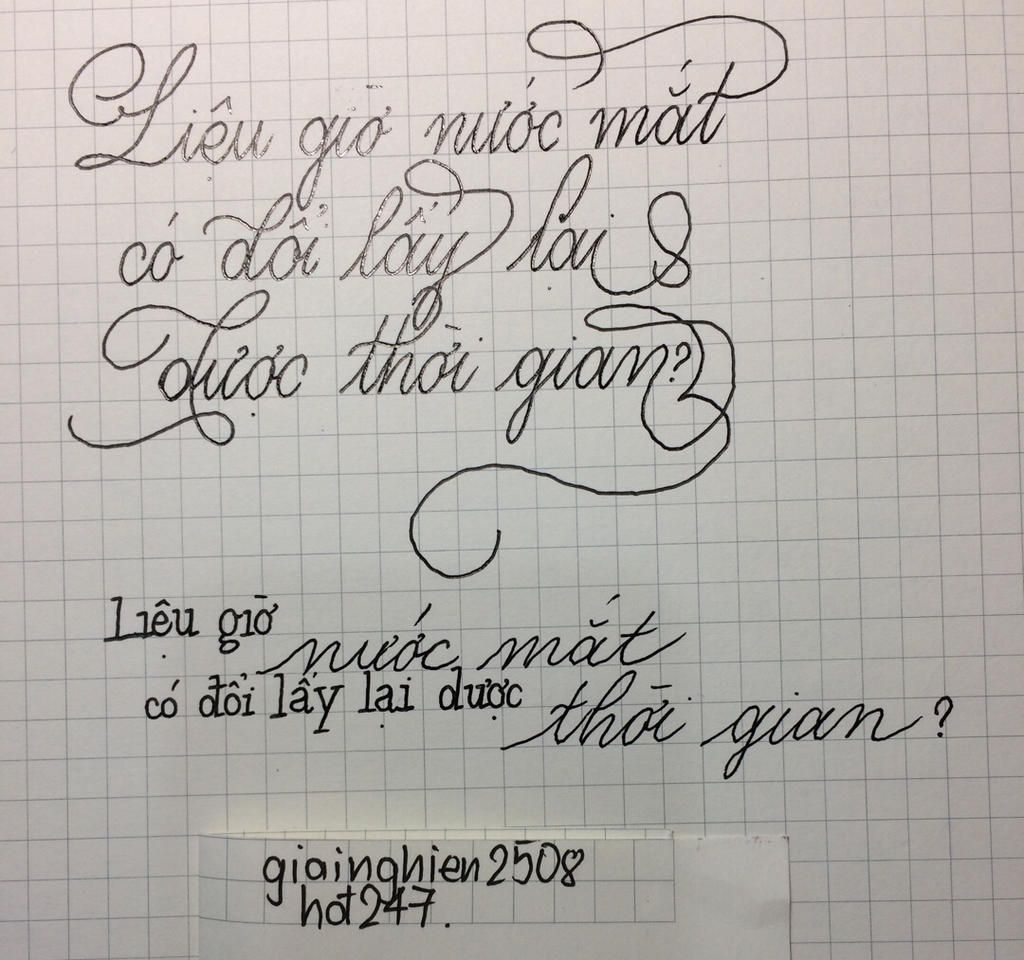 Liệu giờ nước mắt
có đổi lấy lại
được thời gian?
Liệu giờ nước mắt
có đổi lấy lại được thời gian?
giainghien2508
hot247.